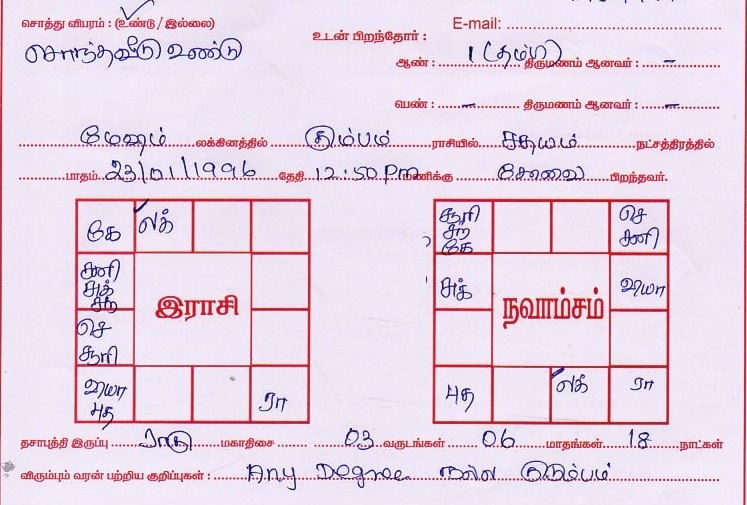 சொத்து விபரம் : (உண்டு / இல்லை) E-mail:
சொந்தவீடு உண்டு உடன் பிறந்தோர் :
ஆண் : 1 (தம்பி) திருமணம் ஆனவர் : -
பெண் : - திருமணம் ஆனவர் : -
மேஷம் லக்கினத்தில் கும்பம் ராசியில் சதயம் நட்சத்திரத்தில்
பாதம் 23/01/1996 தேதி 12:50 Pm மணிக்கு கோவை பிறந்தவர்.
கே லக்
சனி சுக் சந்
இராசி
செ சூரி
வியா புத ரா
சூரி சந் கே செ சனி
சுக் வியா
நவாம்சம்
புத லக் ரா
தசாபுத்தி இருப்பு ராகு மகாதிசை 03 வருடங்கள் 06 மாதங்கள் 18 நாட்கள்
விரும்பும் வரன் பற்றிய குறிப்புகள் : Any Degree நல்ல குடும்பம்